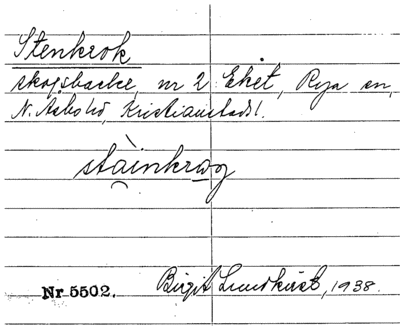 Stenkrok
skogsbacke, nr 2 Eket, Rya sn,
N. Åsbo hd, Kristianstads l.
stäinkrog
Nr 5502. Birgit Lundkvist, 1938.